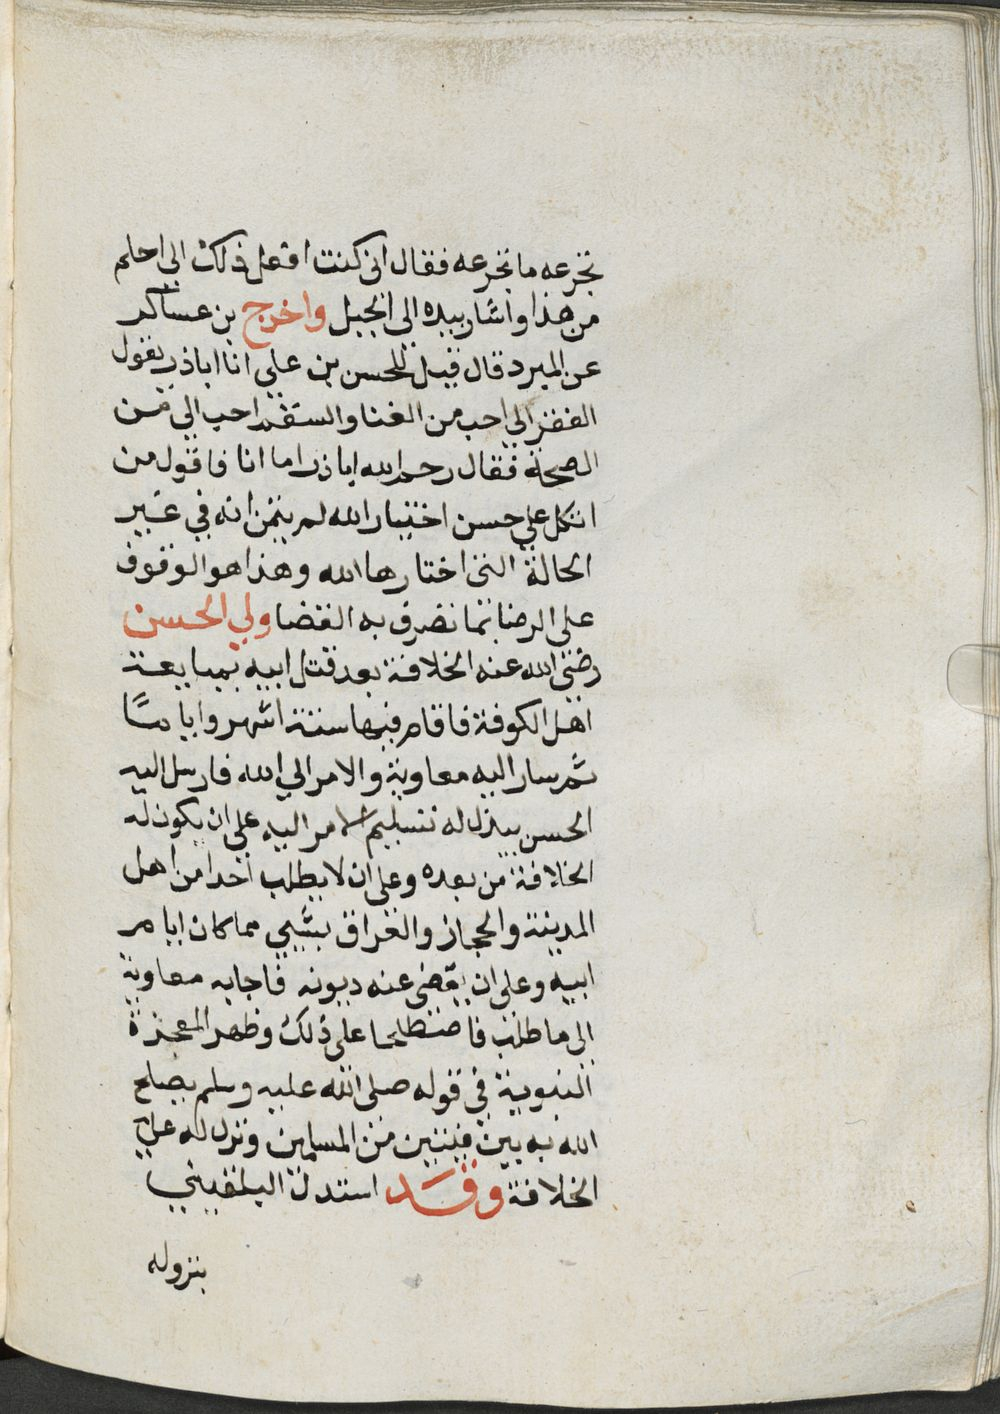 تجرعه ما تجرعه فقال انى كنت افعل ذلك الى احلم
من هذا واشار بيده الى الجبل واخرج بن عساكر
عن المبرد قال قيل للحسن بن علي ان اباذر يقول
الفقر الى احب من الغنا والسقم احب الي من
الصحة فقال رحم الله اباذر اما انا فاقول من
اتكل علي حسن اختيار الله لم يتمن انه في غير
الحالة التى اختارها الله وهذا هو الوقوف
على الرضا بما تصرف به القضا ولي الحسن
رضي الله عنه الخلافة بعد قتل ابيه بمبايعة
اهل الكوفة فاقام فيها ستة اشهر واياما
ثم سار اليه معاوية والامر الي الله فارسل اليه
الحسن يبذل له تسليم الامر اليه على ان يكون له
الخلافة من بعده وعلى ان لا يطلب احدا من اهل
المدينة والحجاز والعراق بشيي مما كان ايام
ابيه وعلى ان يقضى عنه ديونه فاجابه معاوية
الى ما طلب فاصطلحا على ذلك وظهر المعجزة
النبوية في قوله صلى الله عليه وسلم يصلح
الله به بين فئتين من المسلمين ونزل له عن
الخلافة وقد استدل البلقيني
بنزوله